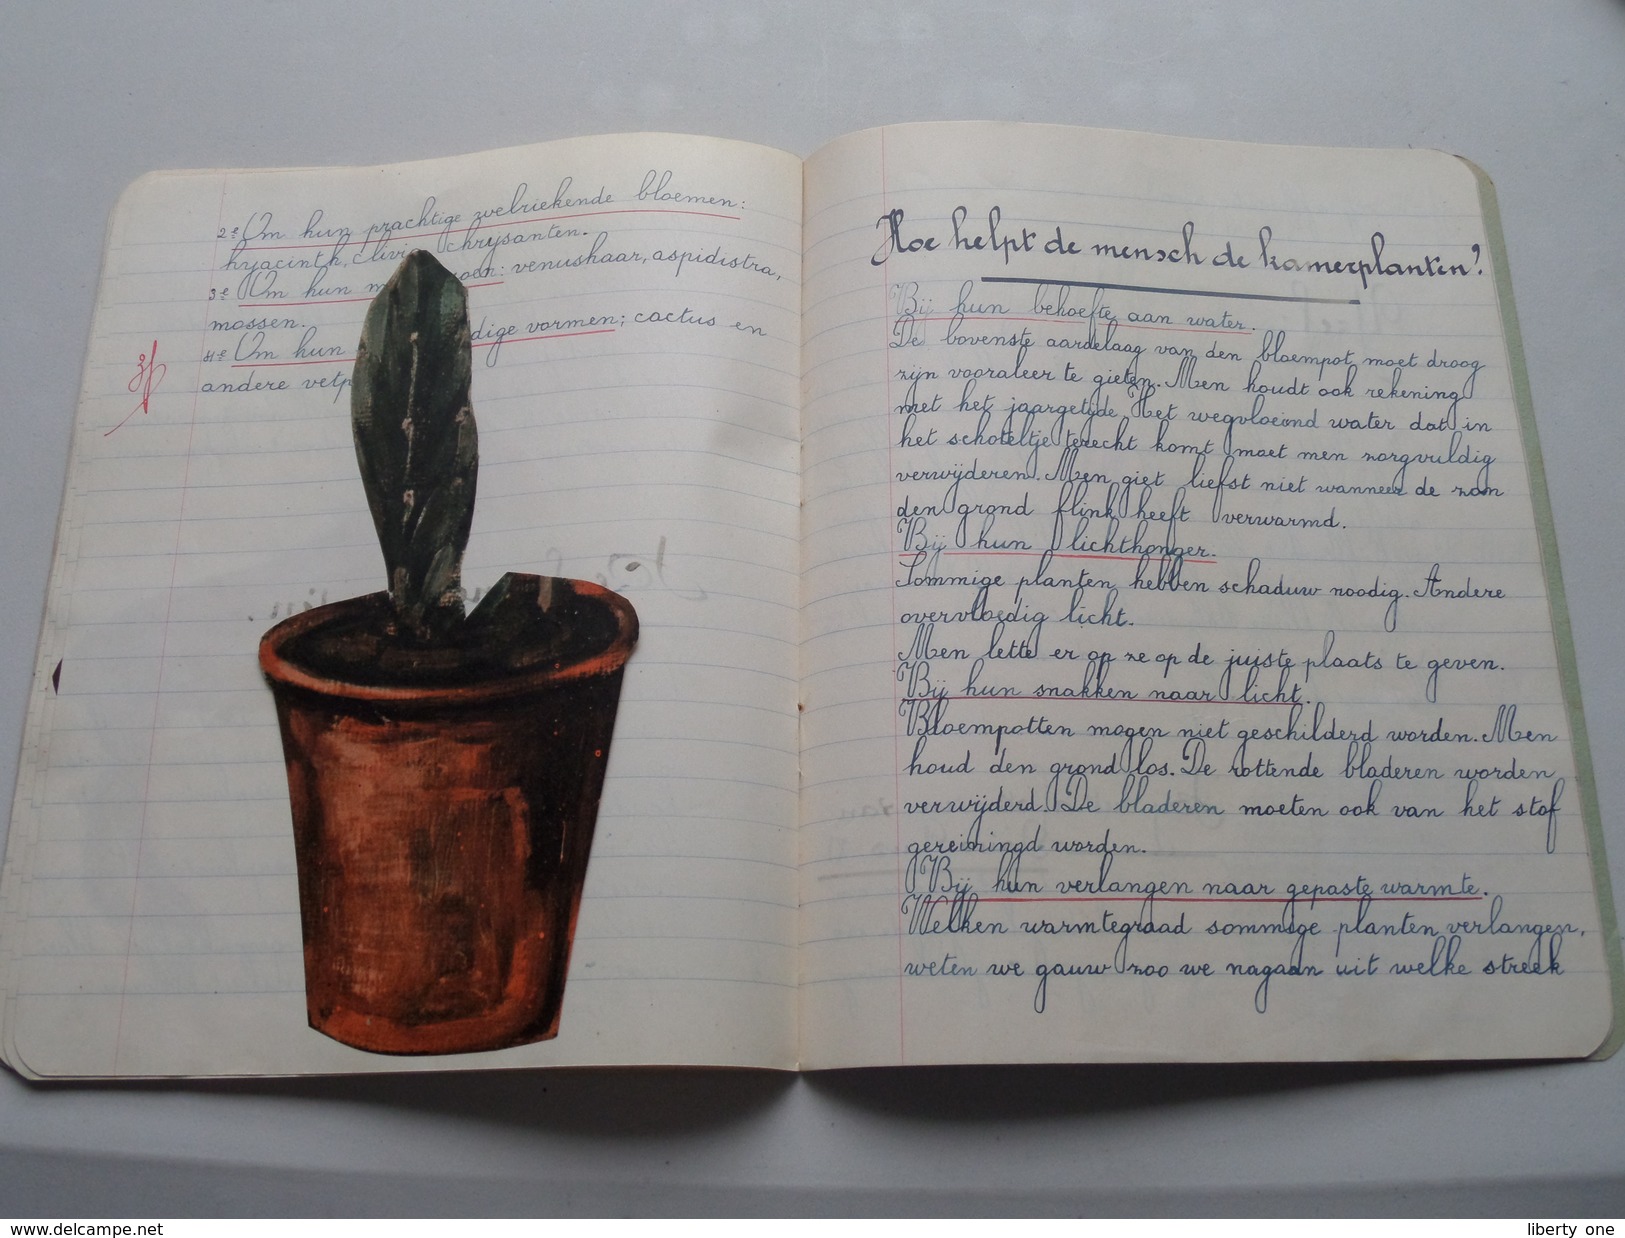 2e Om hun prachtige zoelriekende bloemen:
hyacinth, clivia chrysanten.
3e Om hun m groen: venushaar, aspidistra,
mossen.
4e Om hun dige vormen; cactus en
andere vetp
Hoe helpt de mensch de kamerplanten?
Bij hun behoefte aan water.
De bovenste aardelaag van den bloempot moet droog
zijn vooraleer te gieten. Men houdt ook rekening
met het jaargetijde. Het wegvloeiend water dat in
het schoteltje terecht komt moet men zorgvuldig
verwijderen. Men giet liefst niet wanneer de zon
den grond flink heeft verwarmd.
Bij hun lichthonger.
Sommige planten hebben schaduw noodig. Andere
overvloedig licht.
Men lette er op ze op de juiste plaats te geven.
Bij hun snakken naar licht.
Bloempotten mogen niet geschilderd worden. Men
houd den grond los. De rottende bladeren worden
verwijderd. De bladeren moeten ook van het stof
gereiningd worden.
Bij hun verlangen naar gepaste warmte.
Welken warmtegraad sommige planten verlangen,
weten we gauw zoo we nagaan uit welke streek
www.delcampe.net
liberty one